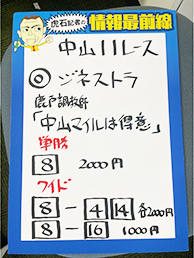 虎石記者の
情報最前線
中山11レース
◎ジネストラ
鹿戸調教師
「中山マイルは得意」
単勝
8 2000円
ワイド
8-4 14 各2000円
8-16 1000円